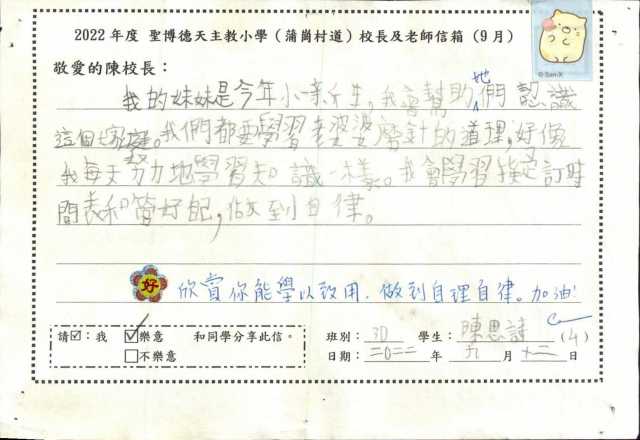 2022 年度 聖博德天主教小學（蒲崗村道）校長及老師信箱（9 月）
敬愛的陳校長：
我的妹妹是今年小一新生，我會幫助她們認識
這個大家庭。我們都要學習老婆婆磨針的道理，好像
我每天努力地學習知識一樣。我會學習按訂時
間表和管好自己，做到自律。
好 欣賞你能學以致用，做到自理自律。加油！
請☑：我 ☑樂意 和同學分享此信。
□不樂意
班別：3D 學生：陳思詩 (4)
日期：二0二二 年 九 月 十二 日
© San-X